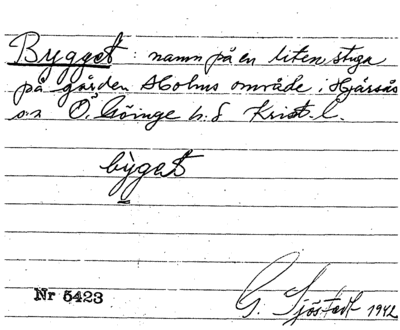 Bygget : namn på en liten stuga
på gården Holms område i Hjärsås
sn Ö. Göinge h. d Krist. l.
bỳget
Nr 5423
G. Sjöstedt 1942